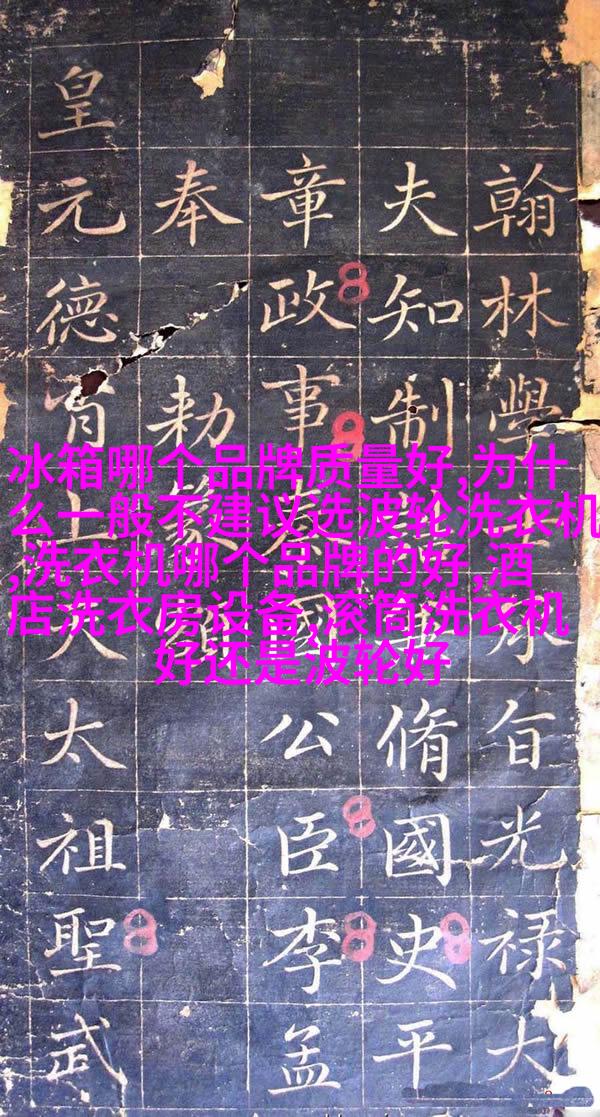 冰箱哪个品牌质量好,为什
么一般不建议选波轮洗衣机
,洗衣机哪个品牌的好,酒
店洗衣房设备,滚筒洗衣机
好还是波轮好
翰林學士承旨光禄大
夫知制脩國史平
章政事國公臣李孟
奉勑
皇元德上太祖聖武